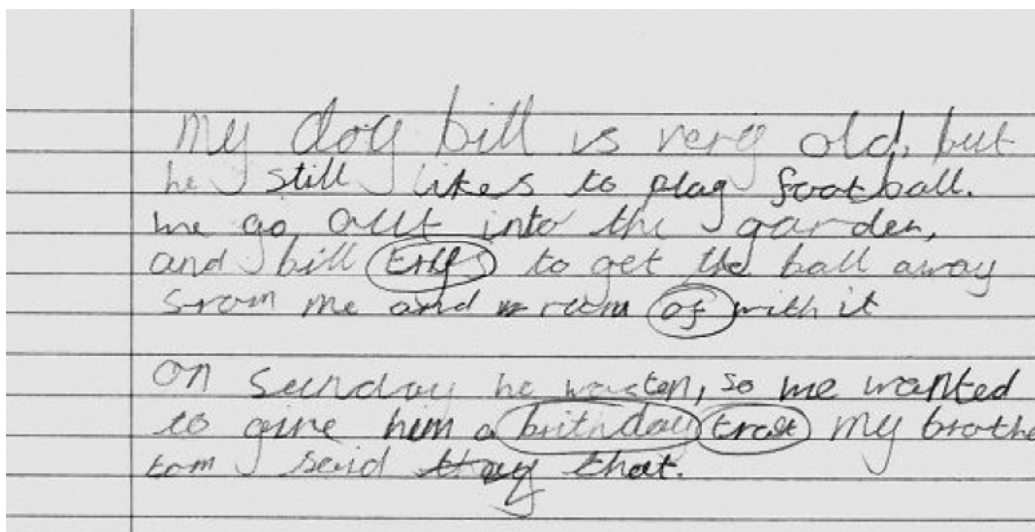 My dog bill is very old, but
he still likes to play football.
we go out into the garden,
and bill trys to get the ball away
from me and run of with it
On Sunday he was ten, so we wanted
to give him a brithday treat My brothe
tom said that.